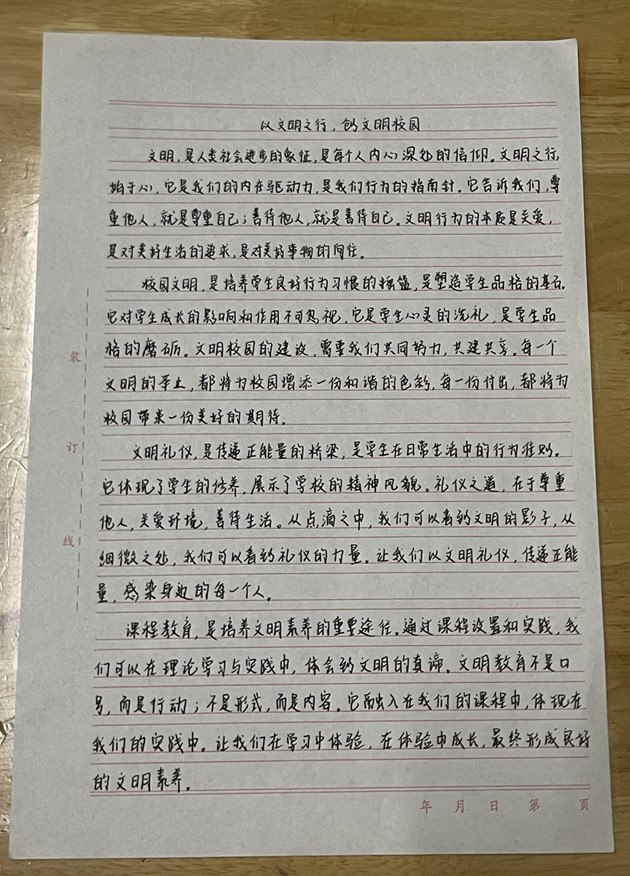 以文明之行，创文明校园
文明，是人类社会进步的象征，是每个人内心深处的信仰。文明之行，
始于心，它是我们的内在驱动力，是我们行为的指南针。它告诉我们，尊
重他人，就是尊重自己；善待他人，就是善待自己。文明行为的本质是关爱，
是对美好生活的追求，是对美好事物的向往。
校园文明，是培养学生良好行为习惯的摇篮，是塑造学生品格的基石。
它对学生成长的影响和作用不可忽视，它是学生心灵的洗礼，是学生品
格的磨砺。文明校园的建设，需要我们共同努力，共建共享。每一个
文明的举止，都将为校园增添一份和谐的色彩，每一份付出，都将为
校园带来一份美好的期待。
文明礼仪，是传递正能量的桥梁，是学生在日常生活中的行为准则。
它体现了学生的修养，展示了学校的精神风貌。礼仪之道，在于尊重
他人，关爱环境，善待生活。从点滴之中，我们可以看到文明的影子，从
细微之处，我们可以看到礼仪的力量。让我们以文明礼仪，传递正能
量，感染身边的每一个人。
课程教育，是培养文明素养的重要途径。通过课程设置和实践，我
们可以在理论学习与实践中，体会到文明的真谛。文明教育不是口
号，而是行动；不是形式，而是内容。它融入在我们的课程中，体现在
我们的实践中。让我们在学习中体验，在体验中成长，最终形成良好
的文明素养。
装
订
线
年 月 日 第 页